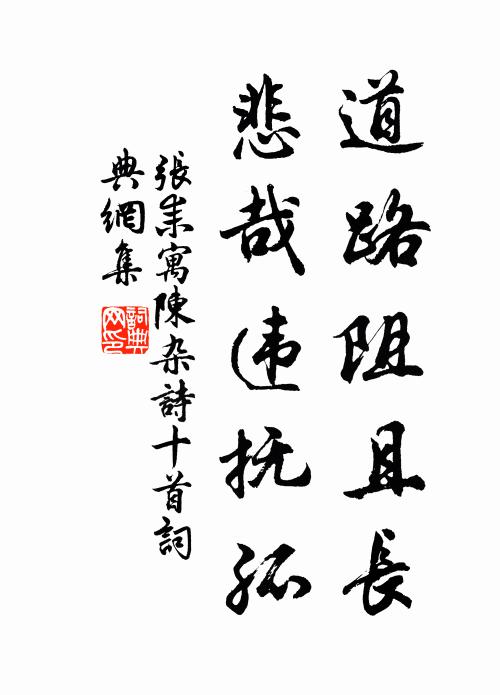 道路阻且長
悲哉违抚孤
張耒寓陳杂詩十首詞
典網集
詞典
网印